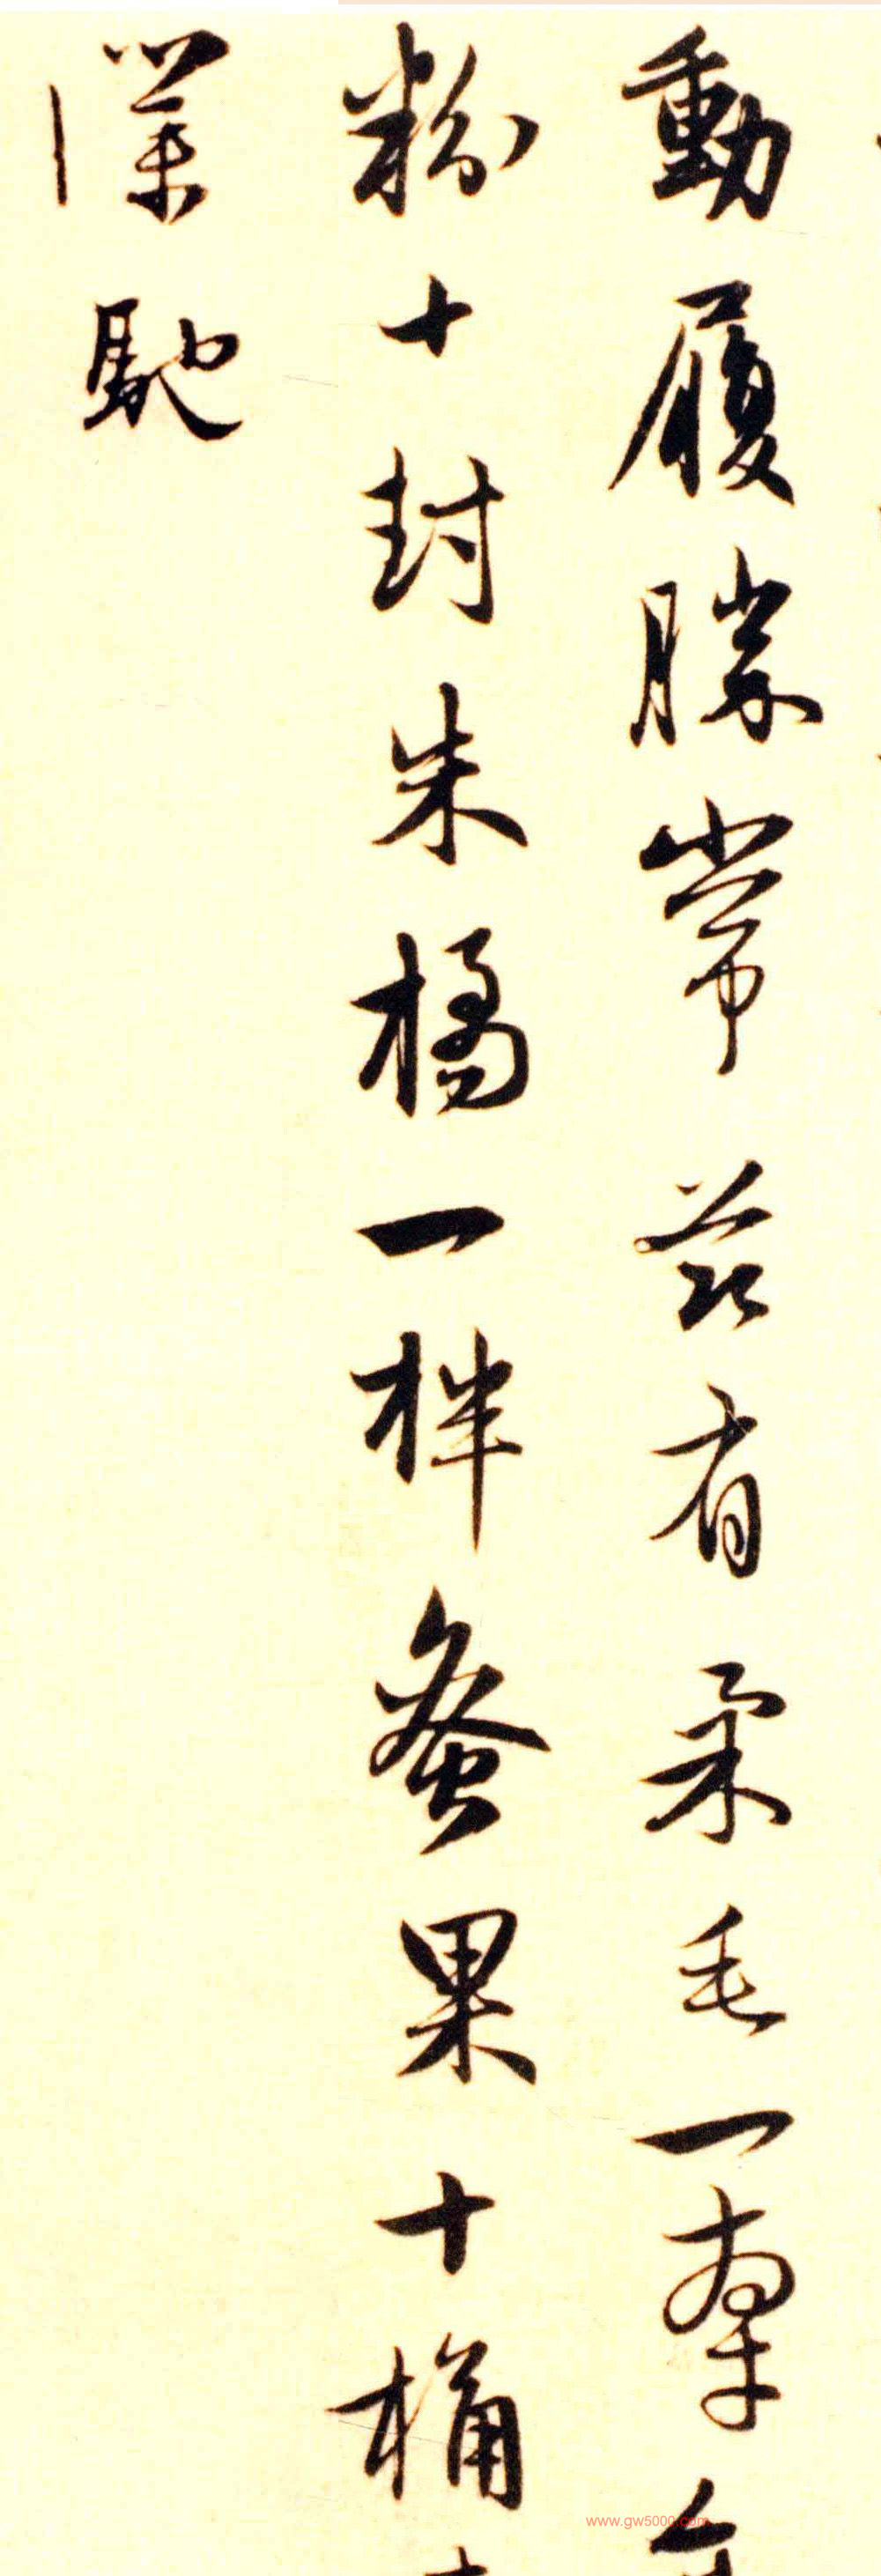 動履勝常茲有柔毛一牽
粉十封朱橘一柈蚤果十桶
僕馳
www.gw5000.com